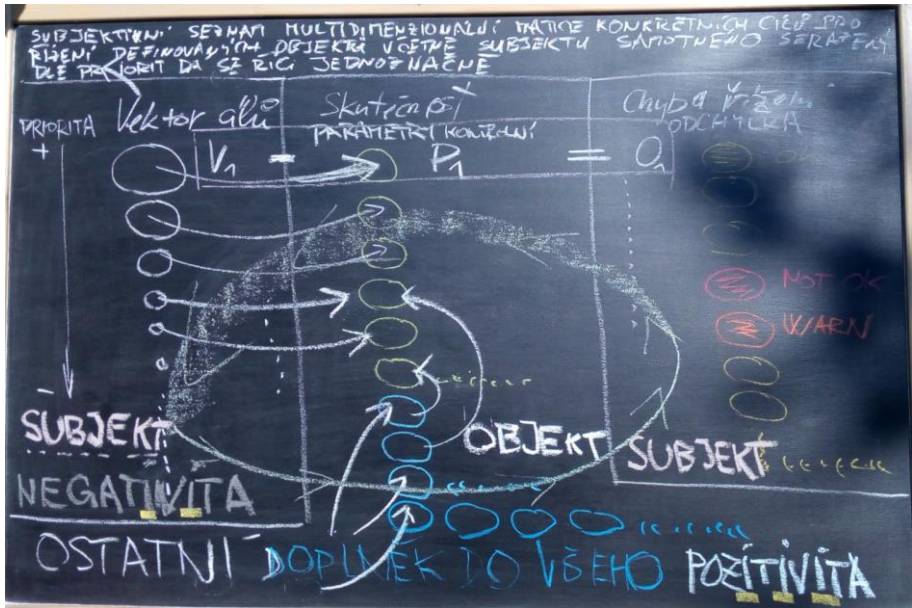 SUBJEKTIVNÍ SEZNAM MULTIDIMENZIONÁLNÍ MATICE KONKRÉTNÍCH CÍLŮ PRO
ŘÍZENÍ DEFINOVANÝCH OBJEKTŮ VČETNĚ SUBJEKTU SAMOTNÉHO SEŘAZENÝ
DLE PRIORIT DÁ SE ŘÍCI JEDNOZNAČNĚ
Vektor cílů
Skutečnost
Chyba
PRIORITA
+
PARAMETRY KONTROLNÍ
ODCHYLKA
V1 = P1 = O1
NOT OK
WARN
-
SUBJEKT
OBJEKT
SUBJEKT
NEGATIVITA
OSTATNÍ
DOPLNĚK DO VŠEHO
POZITIVITA